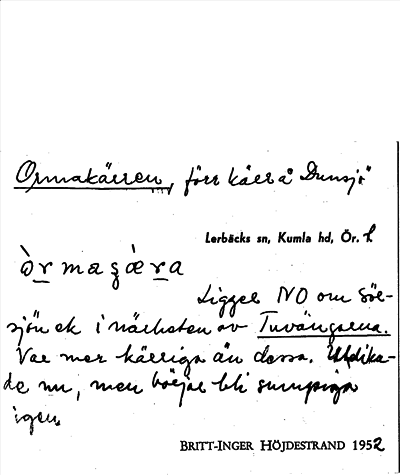 Ormakärren, förr kärr å Dunsjö
Lerbäcks sn, Kumla hd, Ör. l.
òr̲maʂæ̀r̲a
Ligger NO om Sör-
sjön ek i närheten av Tuvängarna.
Var mer kärriga än dessa. Utdika-
de nu, men börjar bli sumpiga
igen.
BRITT-INGER HÖJDESTRAND 1952